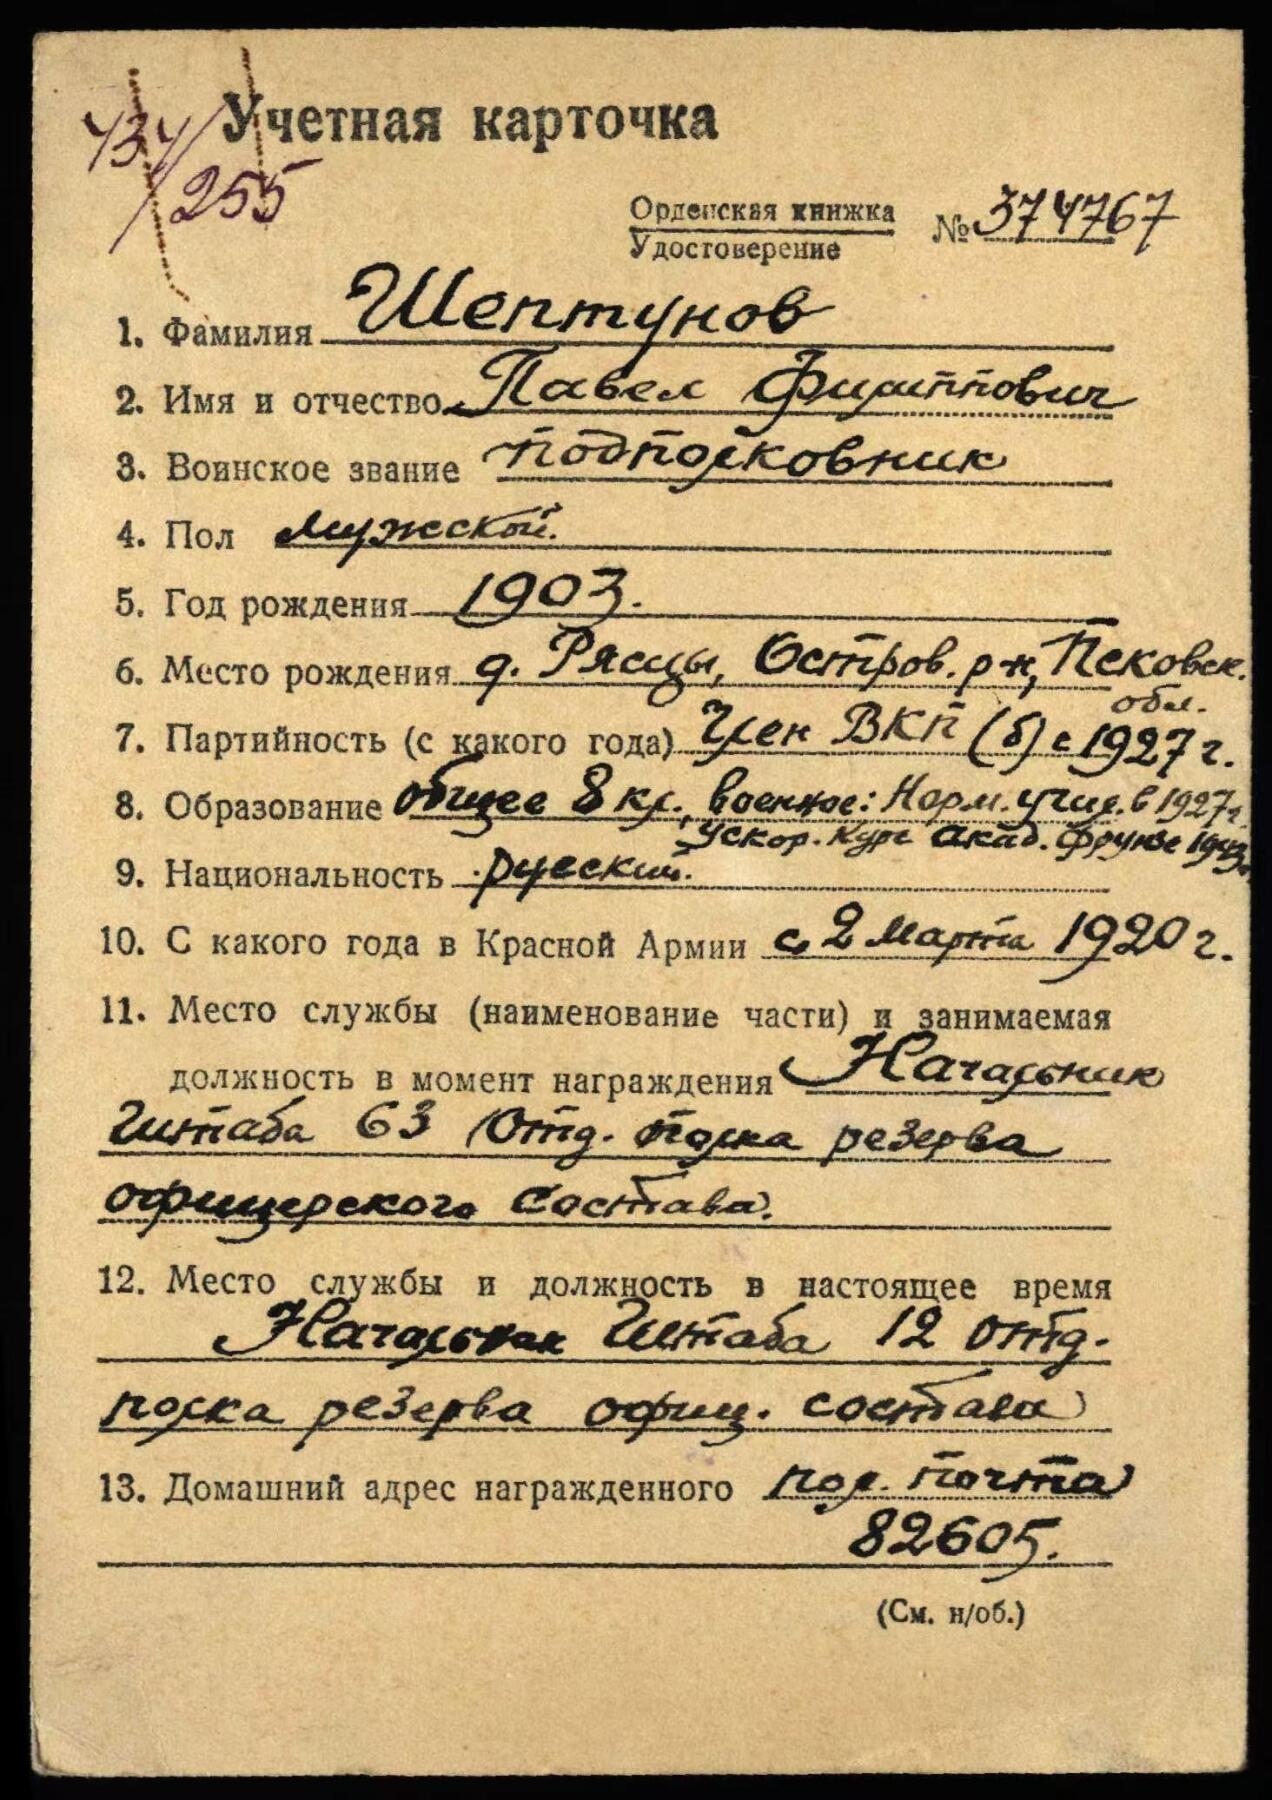 Учетная карточка
434/255
Орденская книжка
Удостоверение
№ 374767
1. Фамилия Шептунов
2. Имя и отчество Павел Филиппович
3. Воинское звание подполковник
4. Пол мужской.
5. Год рождения 1903.
6. Место рождения д. Рясцы, Остров. р-н, Псковск.
обл.
7. Партийность (с какого года) Член ВКП (б) с 1927 г.
8. Образование общее 8 кл., военное: Норм. учил. в 1927 г.
Ускор. Курс Акад. Фрунзе 1943 г.
9. Национальность русский.
10. С какого года в Красной Армии с 2 марта 1920 г.
11. Место службы (наименование части) и занимаемая
должность в момент награждения Начальник
Штаба 63 Отд. полка резерва
офицерского состава.
12. Место службы и должность в настоящее время
Начальник Штаба 12 отд.
полка резерва офиц. состава
13. Домашний адрес награжденного пол. почта
82605.
(См. н/об.)